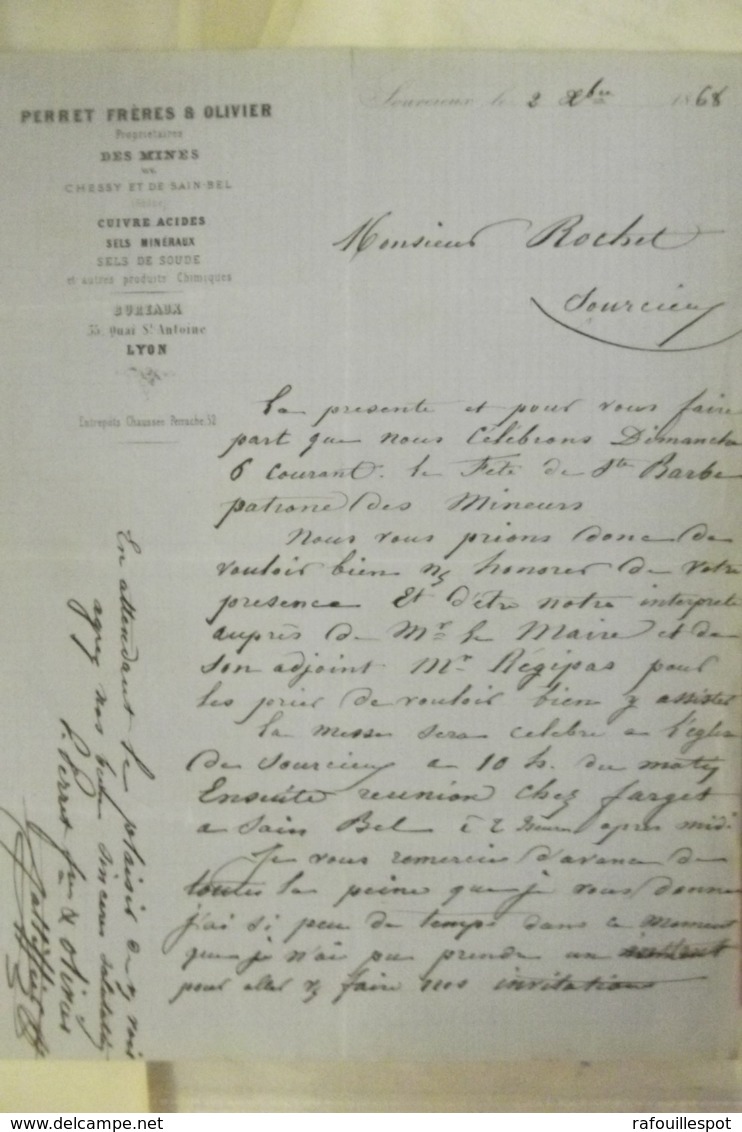 PERRET FRÈRES & OLIVIER
Propriétaires
DES MINES
DE
CHESSY ET DE SAIN-BEL
(Rhône)
CUIVRE ACIDES
SELS MINÉRAUX
SELS DE SOUDE
et autres produits Chimiques
BUREAUX
35, Quai St Antoine
LYON
Entrepôts Chaussée Perrache, 52
le 2 Xbre 1868
Monsieur Rochet
Sourcieux
La presente et pour vous faire
part que nous Célébrons Dimanche
6 courant. la Fête de Ste Barbe
patrone des Mineurs
Nous vous prions donc de
vouloir bien ns honorer de votre
presence Et d'être notre interprete
auprès de Mr le Maire et de
son adjoint Mr Régipas pour
les prier de vouloir bien y assister
La messe sera celebre a l'église
de Sourcieux a 10 h. du matin
Ensuite reunion chez farget
a Sain Bel à 2 heures apres midi
Je vous remercie d'avance de
toutes la peine que je vous donne
j'ai si peu de temps dans ce moment
que je n'ai pu prendre un
pour aller vs faire nos invitations
En attendant le plaisir de vs voir
agreez nos sincères salutations
P. Perret fres & Olivier
rafouillespot